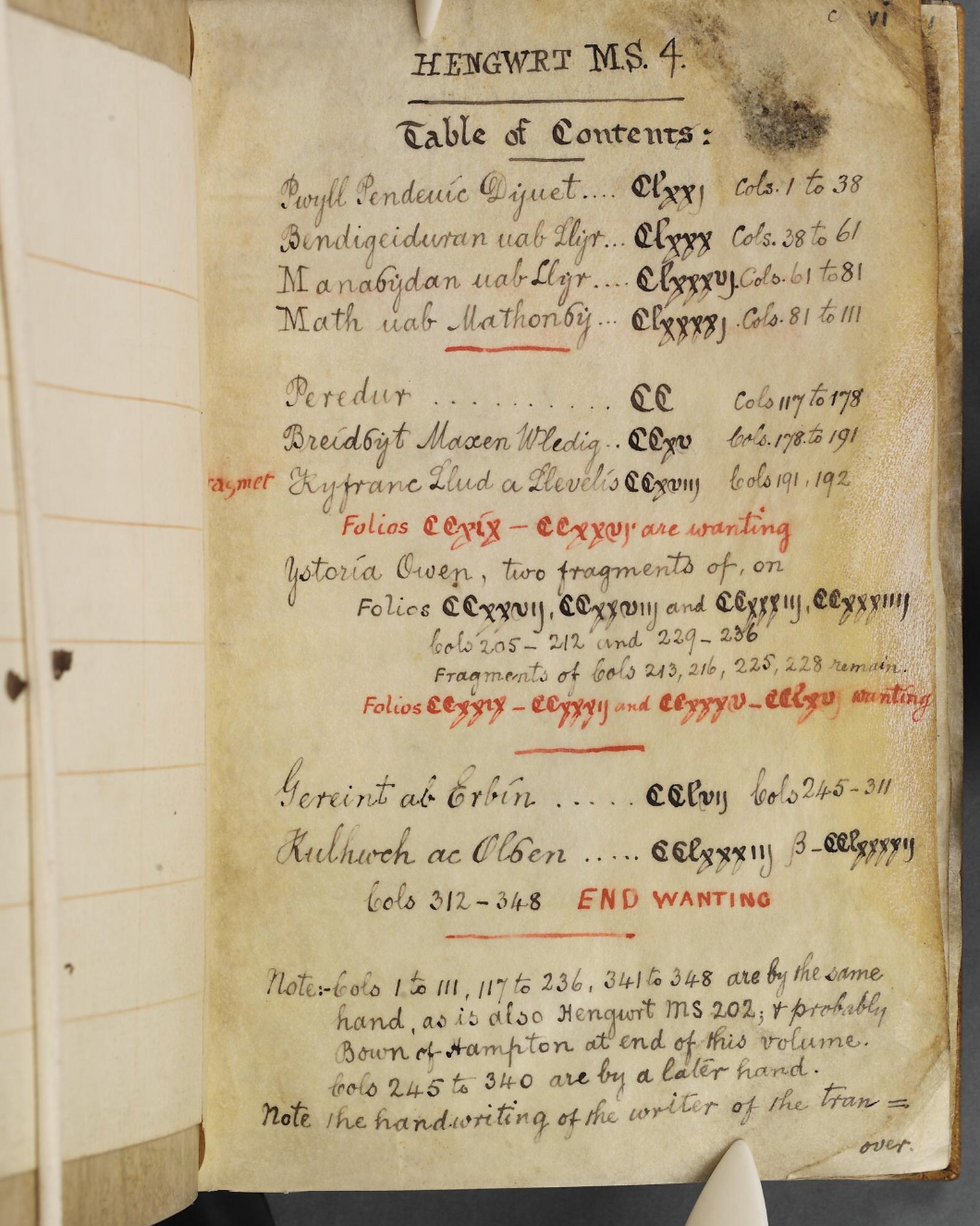 c vi
HENGWRT M.S. 4.
Table of Contents:
Pwyll Pendeuic Dyuet.... Clxxj Cols. 1 to 38
Bendigeiduran uab Llyr... Clxxx Cols. 38 to 61
Manaỽydan uab Llyr.... Clxxxvj. Cols. 61 to 81
Math uab Mathonỽy... Clxxxxj. Cols. 81 to 111
Peredur .......... CC Cols 117 to 178
Breidỽyt Maxen Wledig.. CCxv Cols. 178. to 191
ragmet Kyfranc Llud a Llevelis CCxviij Cols 191, 192
Folios CCxix – CCxxvj are wanting
Ystoria Owen, two fragments of, on
Folios CCxxvij, CCxxviij and CCxxxiij, CCxxxiiij
Cols 205 – 212 and 229 – 236
Fragments of Cols 213, 216, 225, 228 remain.
Folios CCxxix – CCxxxij and CCxxxv – CClxvj wanting
Gereint ab Erbin ..... CClvij Cols 245 – 311
Kulhwch ac Olỽen ..... CClxxxiij β – CClxxxxij
Cols 312 – 348 END WANTING
Note:- Cols 1 to 111, 117 to 236, 341 to 348 are by the same
hand, as is also Hengwrt MS 202; & probably
Bown of Hampton at end of this volume.
Cols 245 to 340 are by a later hand.
Note the handwriting of the writer of the tran =
over.